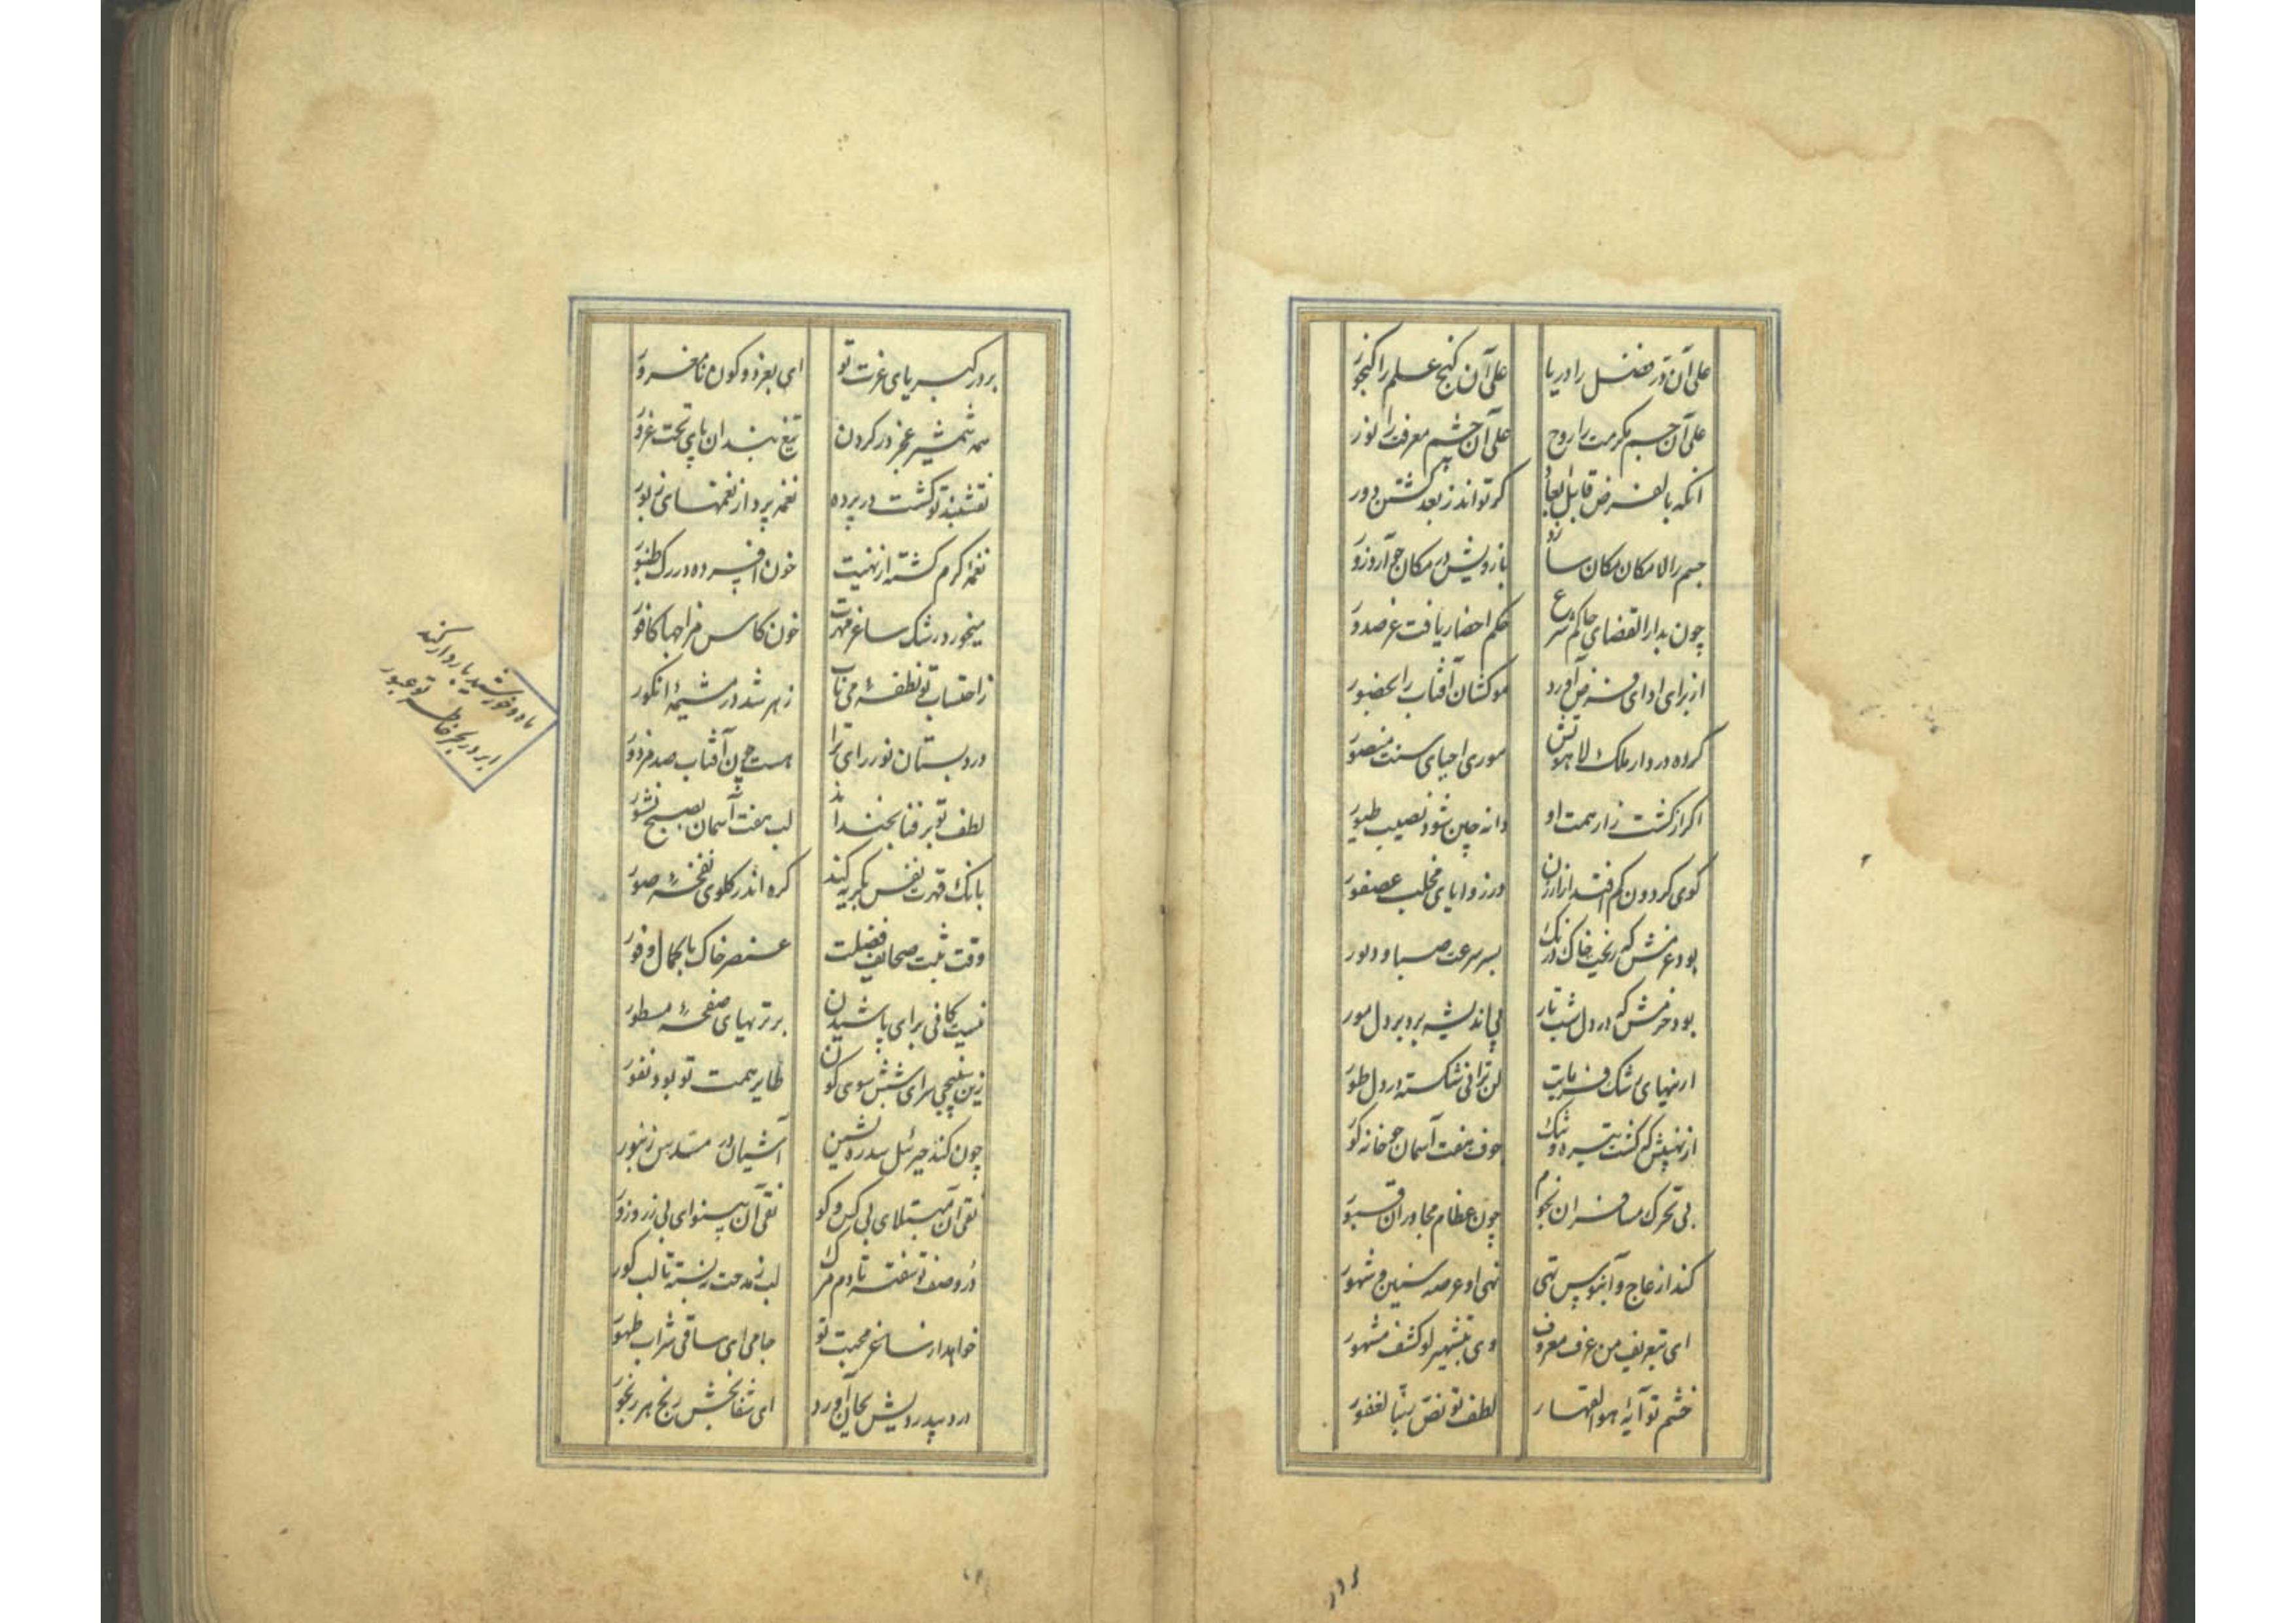 علی آن در فضل را دریا علی آن گنج علم را گنجور
علی آن جسم مکرمت را روح علی آن چشم معرفت را نور
آنکه بالفرض قابل ابعاد کر تواند ز بعد گشتن دور
جسم را لا مکان مکان سازد
چون بدار القضای حاکم شرع حکم احضار یافت
از برای ادای فرض آورد موکشان آفتاب را بحضور
کرده در دار ملک لاهوتش موری احیای سنت منصور
اگر از کشت زار همت او دانه چین شود نصیب طیور
گوی گردون کم افتد از ارزن در زوایای مخلب عصفور
بود عزمش که ریخت خاک درنگ بسر سرعت صبا و دبور
بود حزمش که در دل شب تار پی اندیشه برد بر دل مور
ارنیهای رشک لن ترانی شکسته در دل طور
از نهیبش که گشت تیره و تنگ جوف هفت آسمان چو خانه گور
بی تحرک مسافران نجوم چون عظام مجاوران قبور
کند از عاج و آبنوس تهی نهی او عرصه سنین و شهور
ای بتعریف من عرف معروف وی بتشهیر لو کشف مشهور
خشم تو آیهٔ هو القهار لطف تو نص ربنا لغفور
بر در کبریای عزت تو ای بعز دو کون نا مغرور
همه شمشیر عجز در گردن تیغ بندان پای تخت غرور
گشت در پرده نغمه پرداز نغمهای زبور
نغمهٔ گرم گشته از نهیت خون افسرده در رگ طنبور
میخورد رشک ساغر مهرت خون کاس مزاجها کافور
ز احتساب تو نطفهٔ می ناب زهر شد در مشیمهٔ انگور
در دبستان نور رای ترا هست چون آفتاب صد مزدور
لطف تو بر فنا بخنداند لب هفت آسمان بصبح نشور
بانگ قهرت نفس بگریه کند گره اندر گلوی نفخهٔ صور
وقت ثبت صحایف فضلت عنصر خاک با کمال وفور
نیست کافی برای پاشیدن بر تریهای صفحهٔ مسطور
زین سپنجی سرای شش سوی کون طایر همت تو بود نفور
چون کند جبرئیل سدره نشین آشیان در مسدس زنبور
تقی آن مبتلای بی کس و کو تقی آن بینوای بی زر و زور
در وصف تو سفته تا دم مرگ لب ز مدحت نبسته تا لب گور
خواهد از ساغر محبت تو جامی ای ساقی شراب طهور
درد بیدردیش بجان آورد ای شفا بخش رنج هر رنجور
ماه و خورشید بار دار کند
ابر در بحر خاطر تو عبور